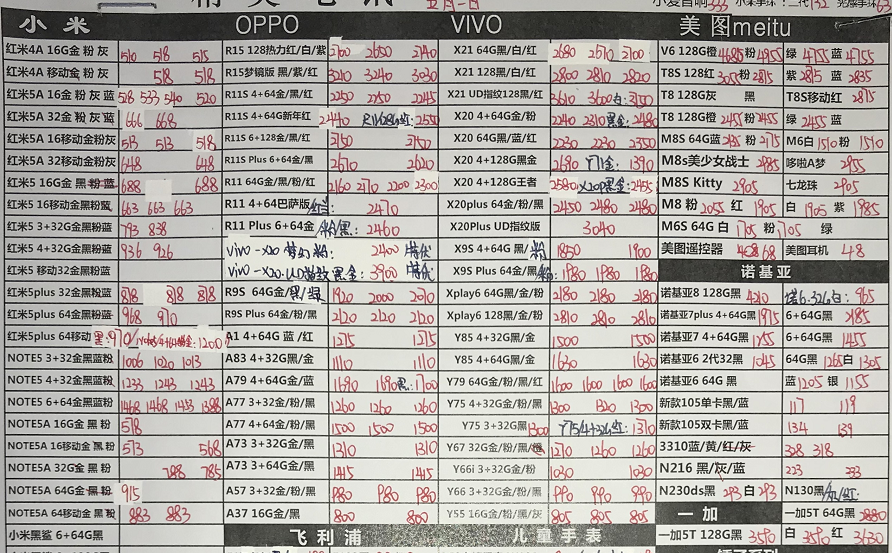 五月一日
小 米 OPPO VIVO 美 图meitu
红米4A 16G金 粉 灰 510 518 515 R15 128热力红/白/紫 2700 2650 2740 X21 64G黑/白/红 2680 2670 2700 V6 128G橙 4685 粉 4955 绿 4755 蓝 4755
红米4A 移动金 粉 灰 518 518 R15梦镜版 黑/紫/红 3240 3240 3030 X21 128黑/白/红 2800 2810 2820 T8S 128红 3055 粉 2815 紫 2815 蓝 2835
红米5A 16金 粉 灰 蓝 528 533 540 520 R11S 4+64金/黑/红 2250 2250 2245 X21 UD指纹128黑/红 3610 3600 白: 3750 T8 128G灰 黑 T8S移动红 2875
红米5A 32金 粉 灰 蓝 666 668 R11S 4+64G新年红 2440 2550 X20 4+64G金/粉 2240 2310 黑金: 2480 T8 128G橙 2455 粉 2455 绿 2455 蓝
红米5A 16移动金粉灰 513 513 518 R11S 6+128金/黑/红 2750 2750 X20 64G黑/蓝/红 2230 2230 2350 M8S 64G蓝 2135 粉 2175 M6白 1510 粉 1510
红米5A 32移动金粉灰 648 648 R11S Plus 6+64金/黑 2670 2620 X20 4+128G黑金 2690 Y71金: 1390 M8s美少女战士 2985 哆啦A梦 2955
红米5 16G金 黑 粉 蓝 688 688 R11 64G金/黑/粉/红 2160 2170 2200 2300 X20 4+128G王者 2580 X20P黑金: 2455 M8S Kitty 2905 七龙珠 2905
红米5 16移动金黑粉蓝 663 663 663 R11 4+64巴萨版/红: 2470 X20plus 64金/粉/黑 2450 2480 2480 M8 粉 2055 红 1905 白 1905 紫 1985
红米5 3+32金黑粉蓝 793 838 R11 Plus 6+64金/粉/黑: 2460 X20Plus UD指纹版 3040 M6S 64G 白 1705 粉 1705 绿
红米5 4+32G金黑粉蓝 936 926 vivo-X20 梦幻粉: 2400 特优 X9S 4+64G 黑/粉 1850 1900 美图遥控器 468 68 美图耳机 48
红米5 移动32金黑粉蓝 vivo-X20-UD指纹黑金: 3900 特优 X9S Plus 64金/黑/粉: 1980 1980 1980 诺基亚
红米5plus 32金黑粉蓝 818 818 818 R9S 64G金/黑/绿 1920 2000 2070 Xplay6 64G黑/金/粉 2180 2180 2180 诺基亚8 128G黑 4210 诺6.32G白: 965
红米5plus 64金黑粉蓝 968 970 R9S Plus 64金/粉/黑 2120 2120 2120 Xplay6 128黑/金/粉 2810 2810 2810 诺基亚7plus 4+64G黑 1975 6+64G黑 2185
红米5plus 64移动 黑: 970 1200 A1 4+64G 蓝/红 1275 1275 Y85 4+32G金/黑 1500 1500 诺基亚7 4+64G黑 1255 6+64G黑 1455
NOTE5 3+32金黑蓝粉 1006 1020 1013 A83 4+32G黑/金 1110 1110 Y85 4+64G金/黑 1630 1630 诺基亚6 2代32黑 1045 64G黑 1265 白 1305
NOTE5 4+32金黑蓝粉 1233 1243 1243 A79 4+64G金/蓝 1690 1690 黑: 1700 Y79 64G金/粉/黑/红 1600 1600 1600 1600 诺基亚6 64G 黑 蓝 1205 银 1155
NOTE5 6+64金黑蓝粉 1468 1468 1433 1388 A77 3+32金/粉/黑 1260 1260 1260 Y75 4+32G金/粉 1300 1320 1300 新款105单卡黑/蓝 117 119
NOTE5A 16G金 黑 粉 578 A77 4+64金/粉/黑 1500 1500 1500 Y75 3+32G黑 1300 Y75/4+32G红: 1310 新款105双卡黑/蓝 134 139
NOTE5A 16移动金 黑 粉 573 568 A73 3+32G金/黑 1310 1310 Y67 32G金/粉/黑 1270 1260 1260 3310蓝/黄/红/灰 328 318
NOTE5A 32G金 黑 粉 788 785 A73 3+64G金/黑 1415 1415 Y66i 3+32G金/粉 1030 1030 N216 黑/灰/蓝 223 233
NOTE5A 64G金 黑 粉 915 A57 3+32金/粉/黑 980 980 980 Y66 3+32G金/粉/黑 990 990 990 N230ds黑 293 白 293 N130黑/灰/红:
NOTE5A 64移动金 黑 粉 883 883 A37 16G金/黑 880 880 Y55 16G金/粉/灰 805 805 805 一加 一加5T 64G黑 2880
小米黑鲨 6+64G黑 飞利浦 儿童手表 一加5T 128G黑 3590 白 3590 红 3630